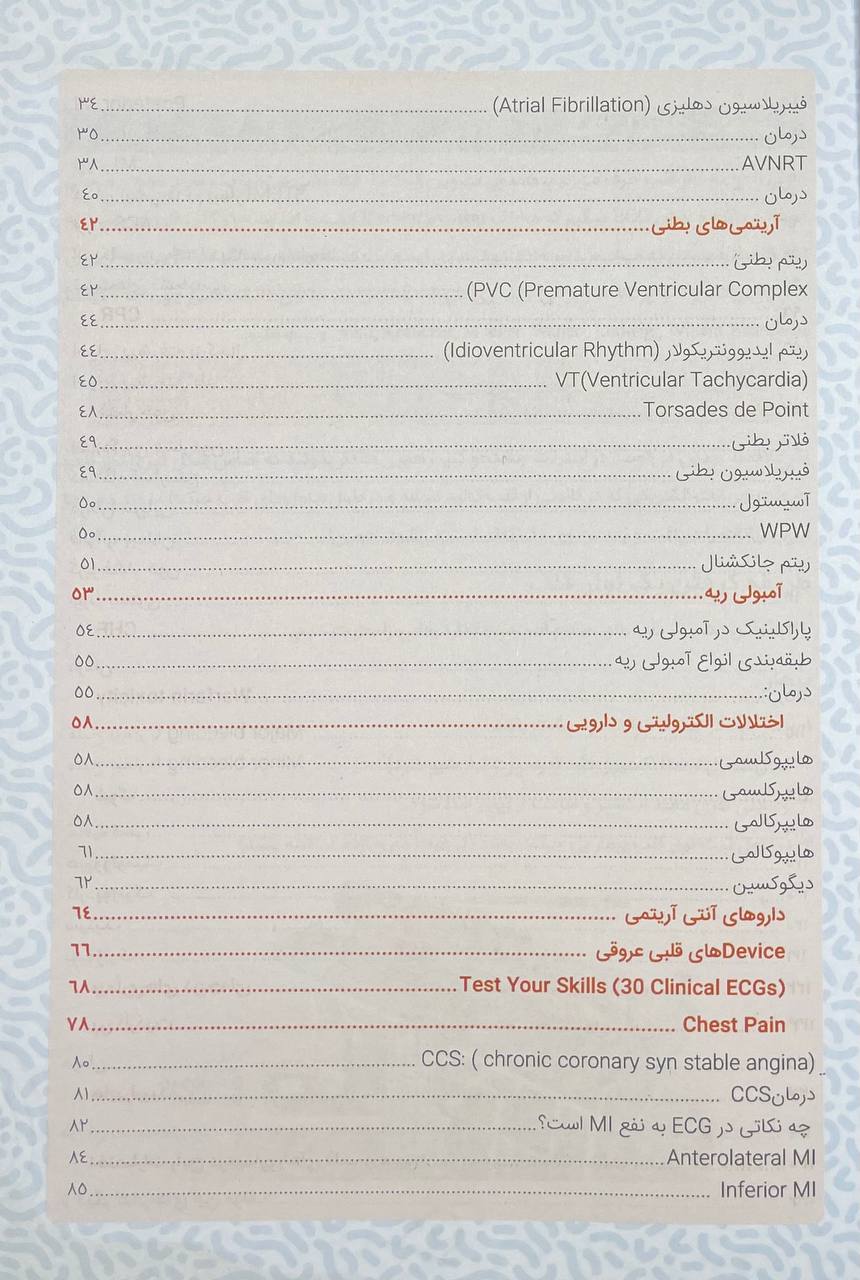 فیبریلاسیون دهلیزی (Atrial Fibrillation) ........ ٣٤
درمان ........ ٣٥
AVNRT ........ ٣٨
درمان ........ ٤٠
آریتمی‌های بطنی ........ ٤٢
ریتم بطنی ........ ٤٢
PVC (Premature Ventricular Complex) ........ ٤٢
درمان ........ ٤٤
ریتم ایدیوونتریکولار (Idioventricular Rhythm) ........ ٤٤
VT(Ventricular Tachycardia) ........ ٤٥
Torsades de Point ........ ٤٨
فلاتر بطنی ........ ٤٩
فیبریلاسیون بطنی ........ ٤٩
آسیستول ........ ٥٠
WPW ........ ٥٠
ریتم جانکشنال ........ ٥١
آمبولی ریه ........ ٥٣
پاراکلینیک در آمبولی ریه ........ ٥٤
طبقه‌بندی انواع آمبولی ریه ........ ٥٥
درمان: ........ ٥٥
اختلالات الکترولیتی و دارویی ........ ٥٨
هایپوکلسمی ........ ٥٨
هایپرکلسمی ........ ٥٨
هایپرکالمی ........ ٥٨
هایپوکالمی ........ ٦١
دیگوکسین ........ ٦٢
داروهای آنتی آریتمی ........ ٦٤
Deviceهای قلبی عروقی ........ ٦٦
Test Your Skills (30 Clinical ECGs) ........ ٦٨
Chest Pain ........ ٧٨
CCS: ( chronic coronary syn stable angina) ........ ٨٠
درمانCCS ........ ٨١
چه نکاتی در ECG به نفع MI است؟ ........ ٨٢
Anterolateral MI ........ ٨٤
Inferior MI ........ ٨٥